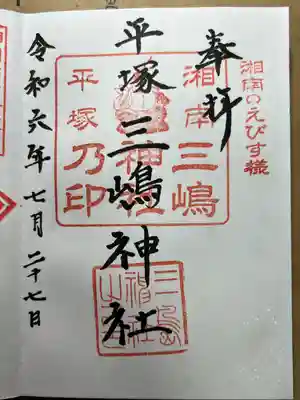 湘南のえびす様
奉拝
湘南三嶋
神社
平塚乃印
平塚三嶋神社
三島神社
令和六年七月二十七日